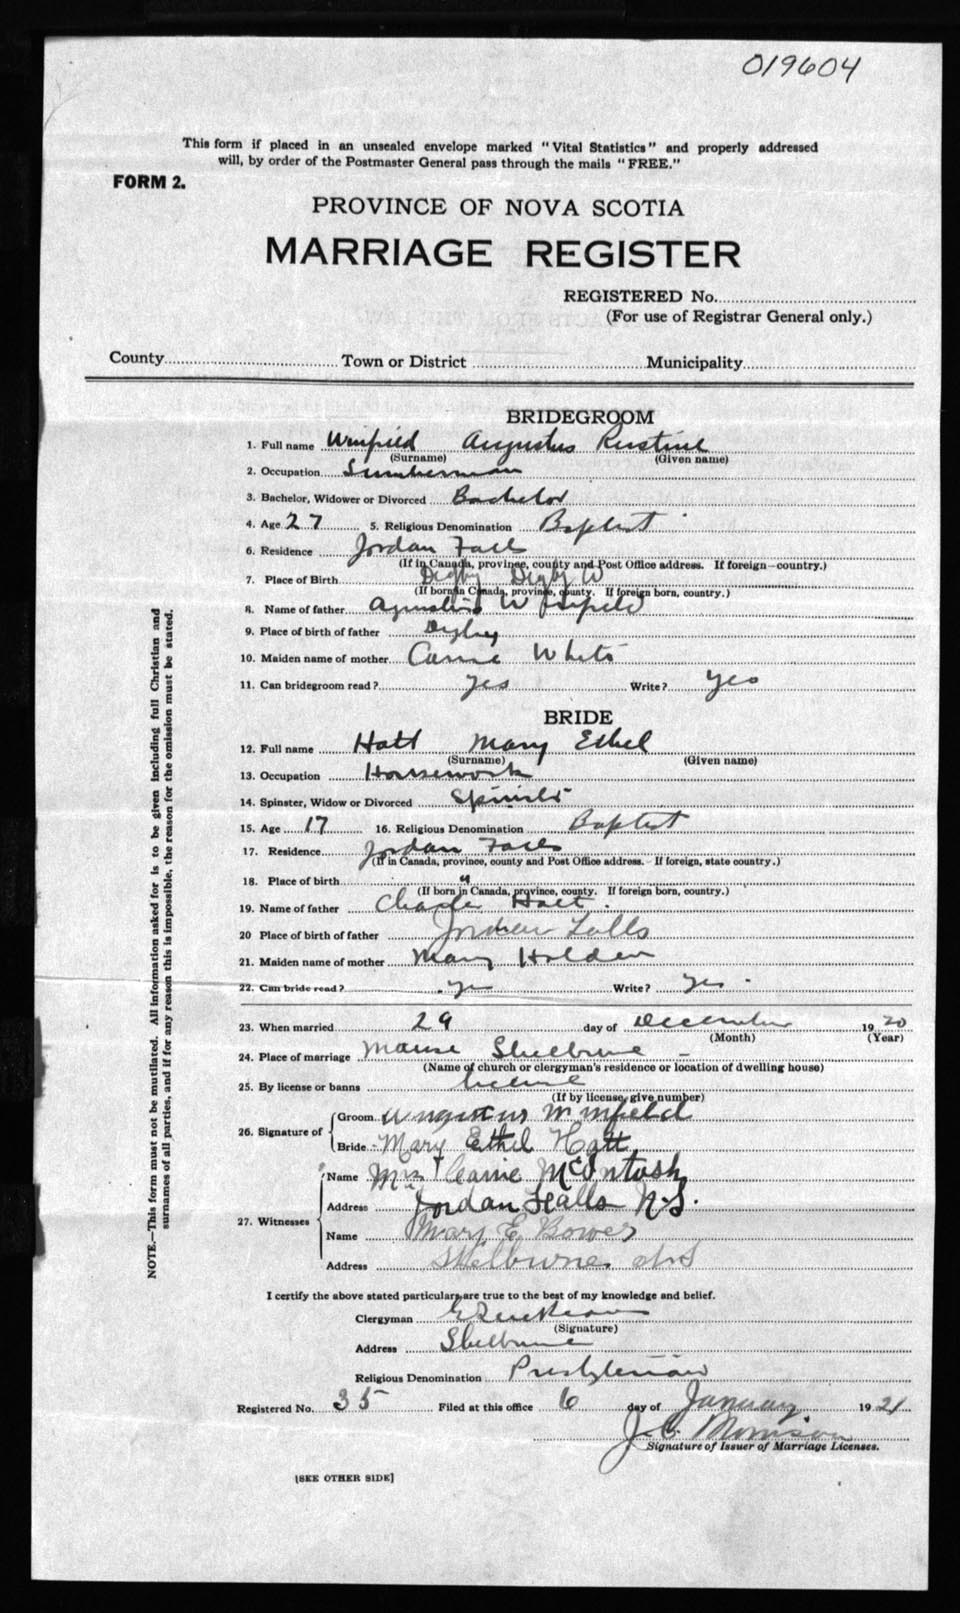 019604
This form if placed in an unsealed envelope marked "Vital Statistics" and properly addressed
will, by order of the Postmaster General pass through the mails "FREE."
FORM 2.
PROVINCE OF NOVA SCOTIA
MARRIAGE REGISTER
REGISTERED No.
(For use of Registrar General only.)
County Town or District Municipality
BRIDEGROOM
1. Full name Winfield Augustus
(Surname) (Given name)
2. Occupation Lumberman
3. Bachelor, Widower or Divorced Bachelor
4. Age 27 5. Religious Denomination Baptist
6. Residence Jordan Falls
(If in Canada, province, county and Post Office address. If foreign—country.)
7. Place of Birth Digby Digby
(If born in Canada, province, county. If foreign born, country.)
8. Name of father Winfield
9. Place of birth of father Digby
10. Maiden name of mother Carrie White
11. Can bridegroom read? yes Write? yes
BRIDE
12. Full name Hatt Mary Ethel
(Surname) (Given name)
13. Occupation Housework
14. Spinster, Widow or Divorced Spinster
15. Age 17 16. Religious Denomination Baptist
17. Residence Jordan Falls
(If in Canada, province, county and Post Office address. If foreign, state country.)
18. Place of birth "
(If born in Canada, province, county. If foreign born, country.)
19. Name of father Hatt.
20 Place of birth of father Jordan Falls
21. Maiden name of mother Mary Holden
22. Can bride read? yes Write? yes
23. When married 29 day of December 1920
(Month) (Year)
24. Place of marriage Manse Shelburne
(Name of church or clergyman's residence or location of dwelling house)
25. By license or banns license
(If by license, give number)
26. Signature of Groom Augustus Winfield
Bride Mary Ethel Hatt
27. Witnesses Name Mrs Carrie McIntosh
Address Jordan Falls N.S.
Name Mary E Bower
Address Shelburne N S
I certify the above stated particulars are true to the best of my knowledge and belief.
Clergyman
(Signature)
Address Shelburne
Religious Denomination Presbyterian
Registered No. 35 Filed at this office 6 day of January 1921
J. C. Morrison
Signature of Issuer of Marriage Licenses.
[SEE OTHER SIDE]
NOTE.—This form must not be mutilated. All information asked for is to be given including full Christian and
surnames of all parties, and if for any reason this is impossible, the reason for the omission must be stated.